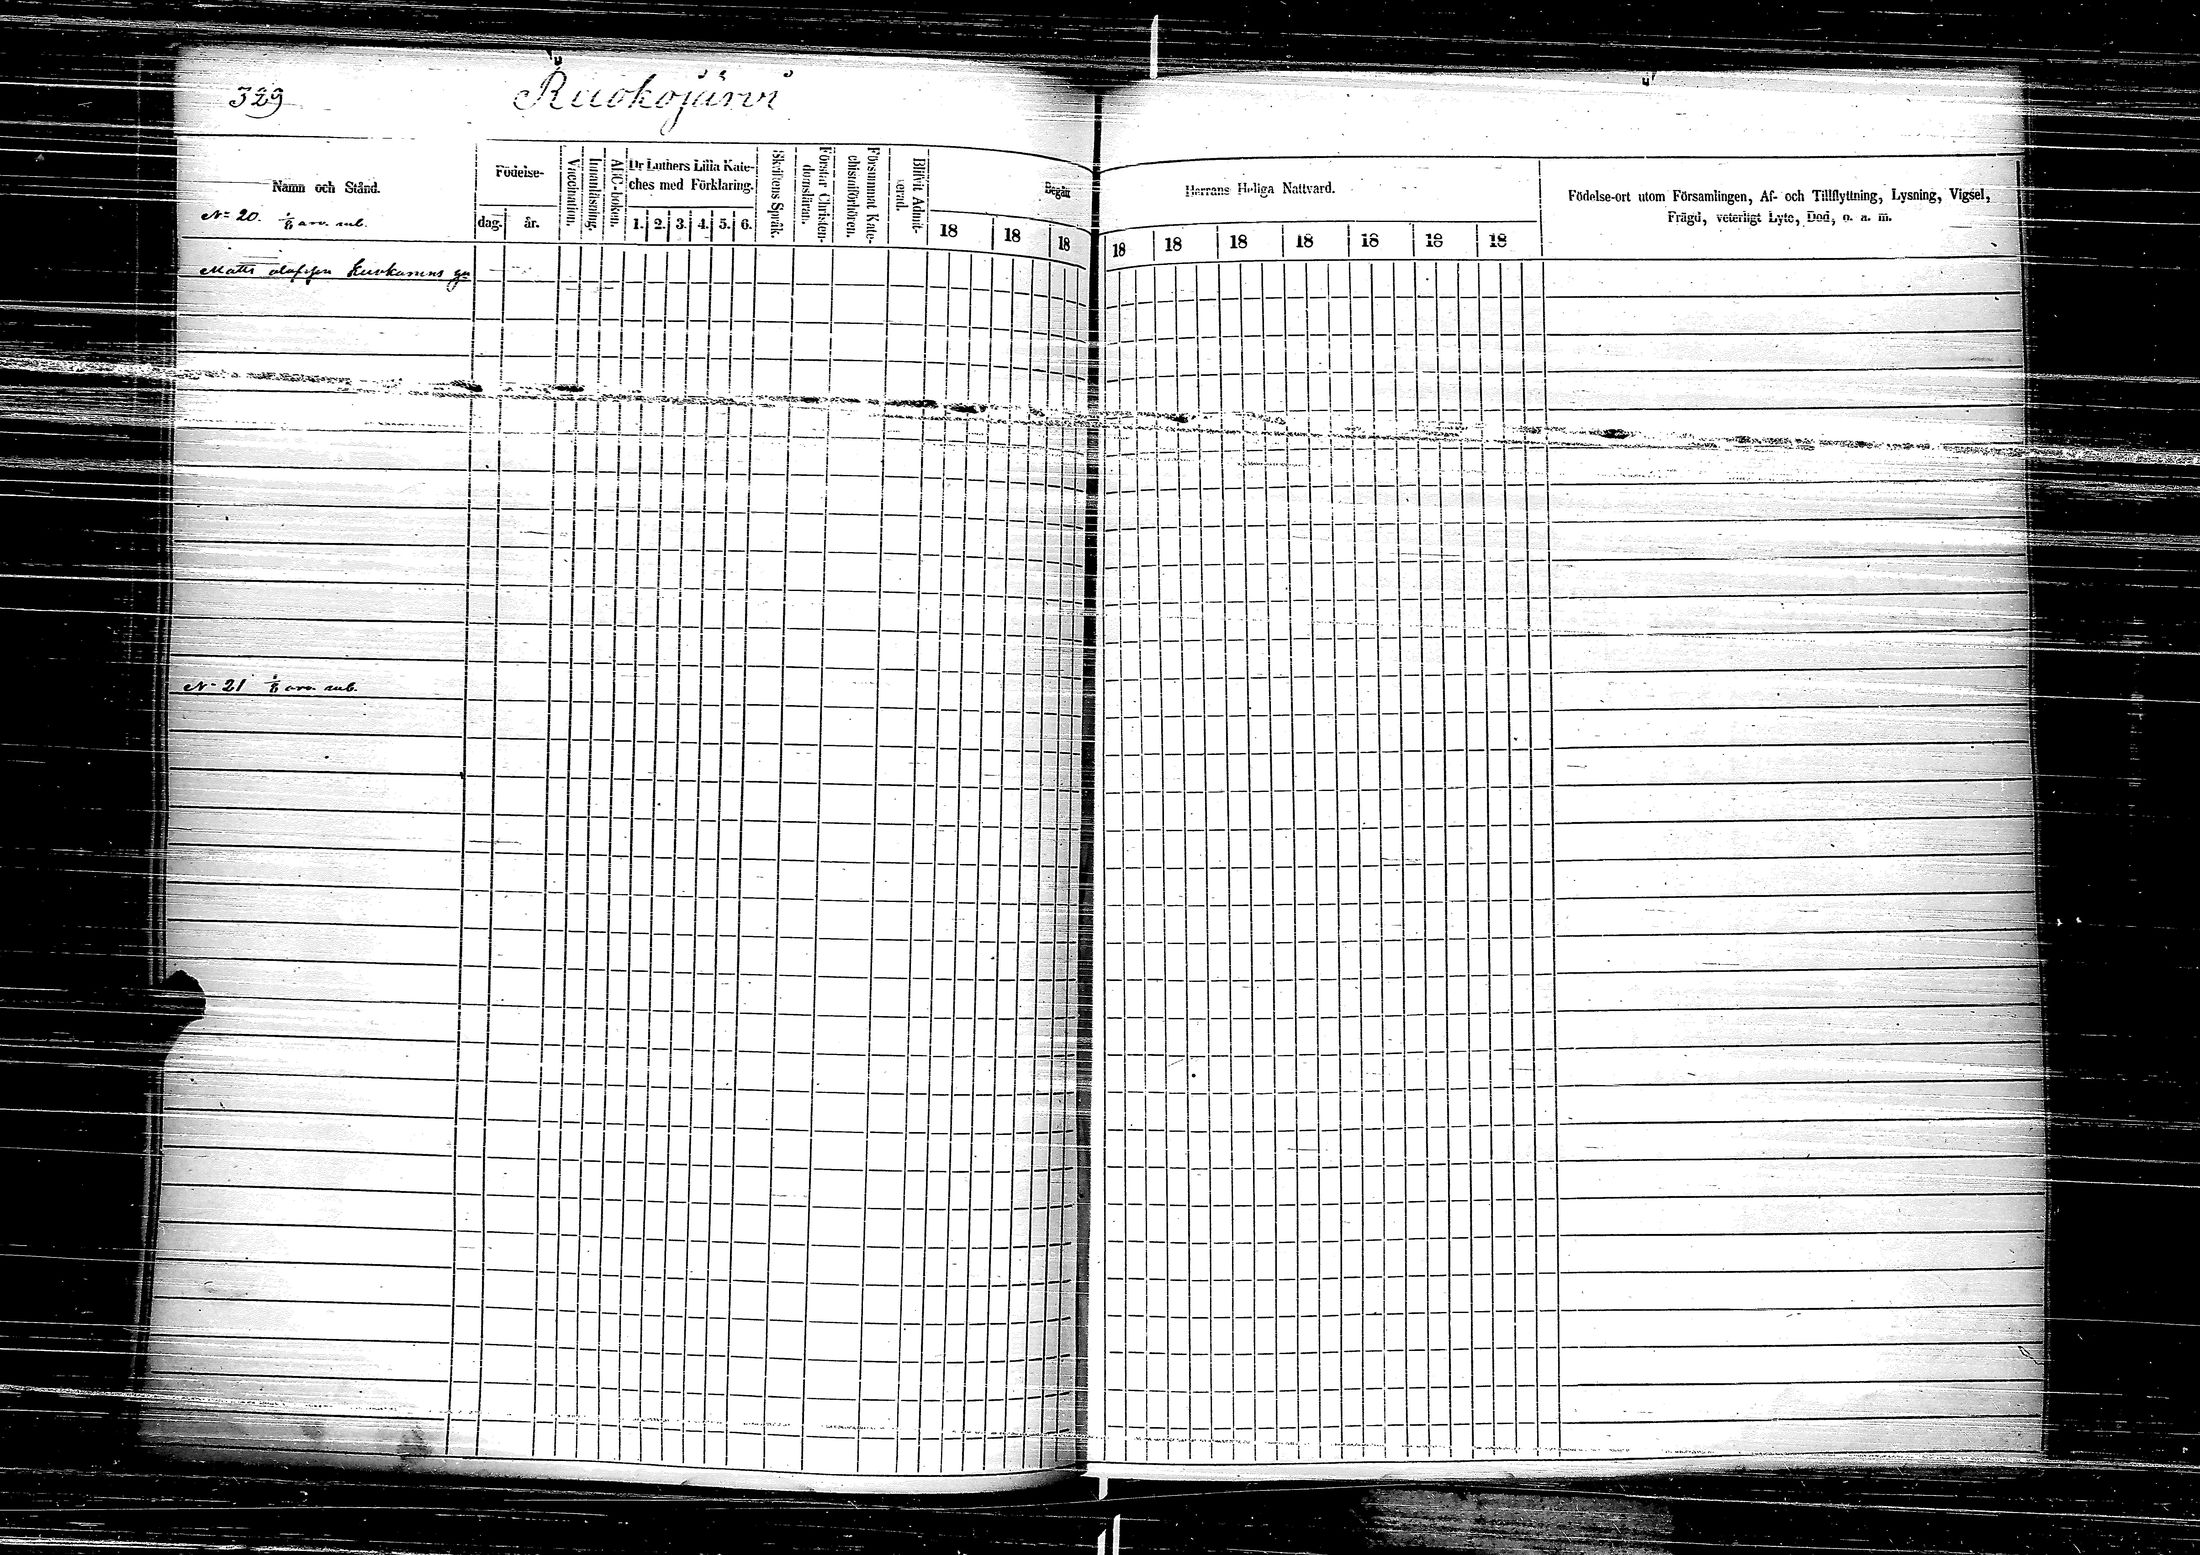 329
Ruokojärvi
Namn och Stånd.
Födelse-
dag. år.
Vaccination.
Innanläsning.
ABC-boken.
Dr Luthers Lilla Kate-
ches med Förklaring.
1. 2. 3. 4. 5. 6.
Skriftens Språk.
Förstår Christen-
domsläran.
Försummat Kate-
chismiförhören.
Blifvit Admit-
terad.
Begått
18 18 18
Herrans Heliga Nattvard.
18 18 18 18 18 18 18
Födelse-ort utom Församlingen, Af- och Tillflyttning, Lysning, Vigsel,
Frägd, veterligt Lyte, Död, o. a. m.
No 20. 1/8 arv. rub.
Matts Olofsson
No 21 1/8 arv. rub.